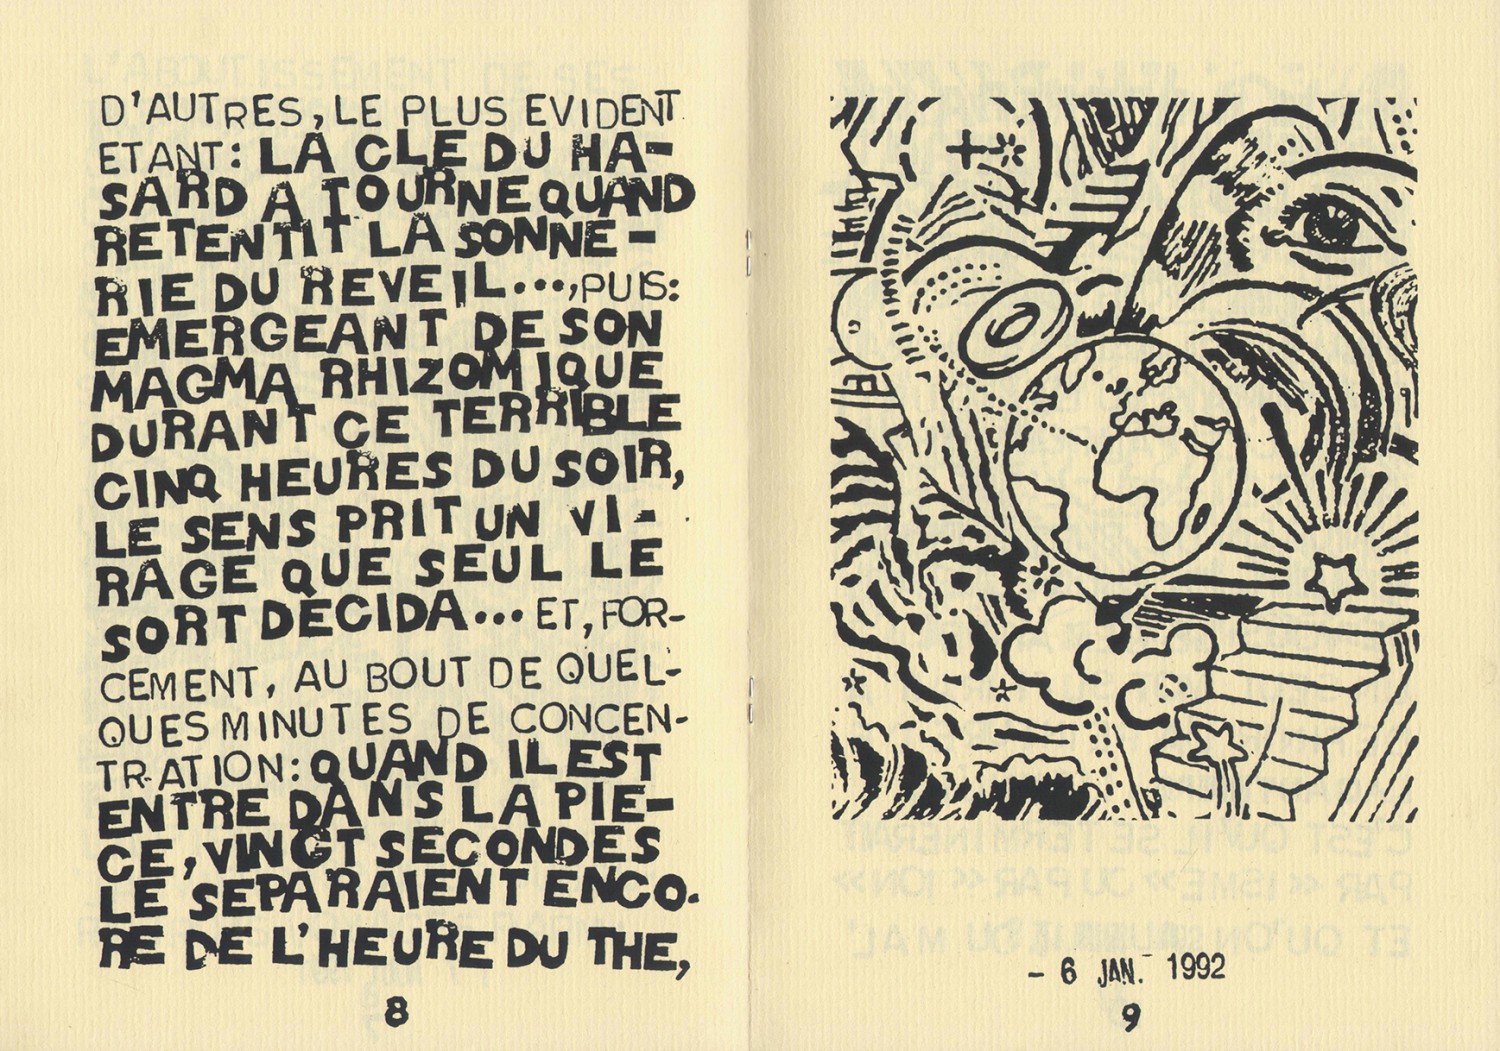 D'AUTRES, LE PLUS EVIDENT
ETANT: LA CLE DU HA-
SARD A TOURNE QUAND
RETENTIT LA SONNE-
RIE DU REVEIL..., PUIS:
EMERGEANT DE SON
MAGMA RHIZOMIQUE
DURANT CE TERRIBLE
CINQ HEURES DU SOIR,
LE SENS PRIT UN VI-
RAGE QUE SEUL LE
SORT DECIDA... ET, FOR-
CEMENT, AU BOUT DE QUEL-
QUES MINUTES DE CONCEN-
TRATION: QUAND IL EST
ENTRE DANS LA PIE-
CE, VINGT SECONDES
LE SEPARAIENT ENCO-
RE DE L'HEURE DU THE,
8
- 6 JAN. 1992
9